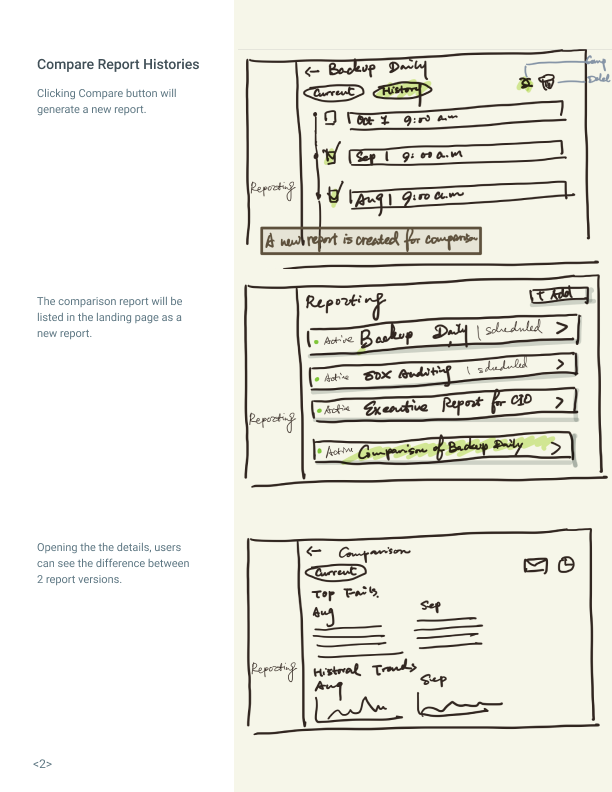 Compare Report Histories
Clicking Compare button will
generate a new report.
← Backup Daily
Current History
Oct 1 9:00 a.m
Sep 1 9:00 a.m
Aug 1 9:00 a.m
Reporting
A new report is created for comparison
The comparison report will be
listed in the landing page as a
new report.
Reporting
+ Add
Active Backup Daily | scheduled >
Active SOX Auditing | scheduled >
Active Executive Report for CIO >
Active Comparison of Backup Daily >
Reporting
Opening the the details, users
can see the difference between
2 report versions.
← Comparison
Current
Top Fails
Aug Sep
Reporting
Historal Trends
Aug Sep
<2>